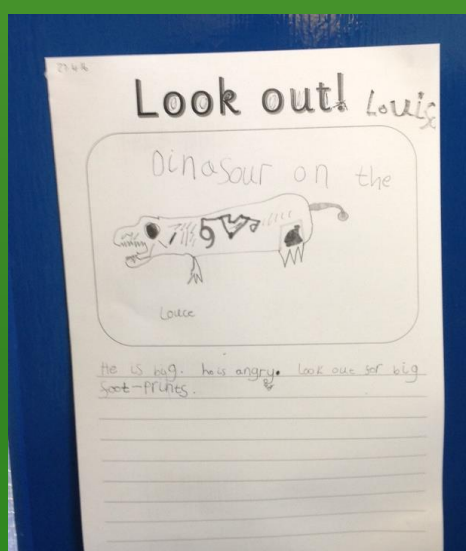 Look out! Louis
Dinasour on the
Louce
He is bug. he is angry. Look out for big
foot-Prints.